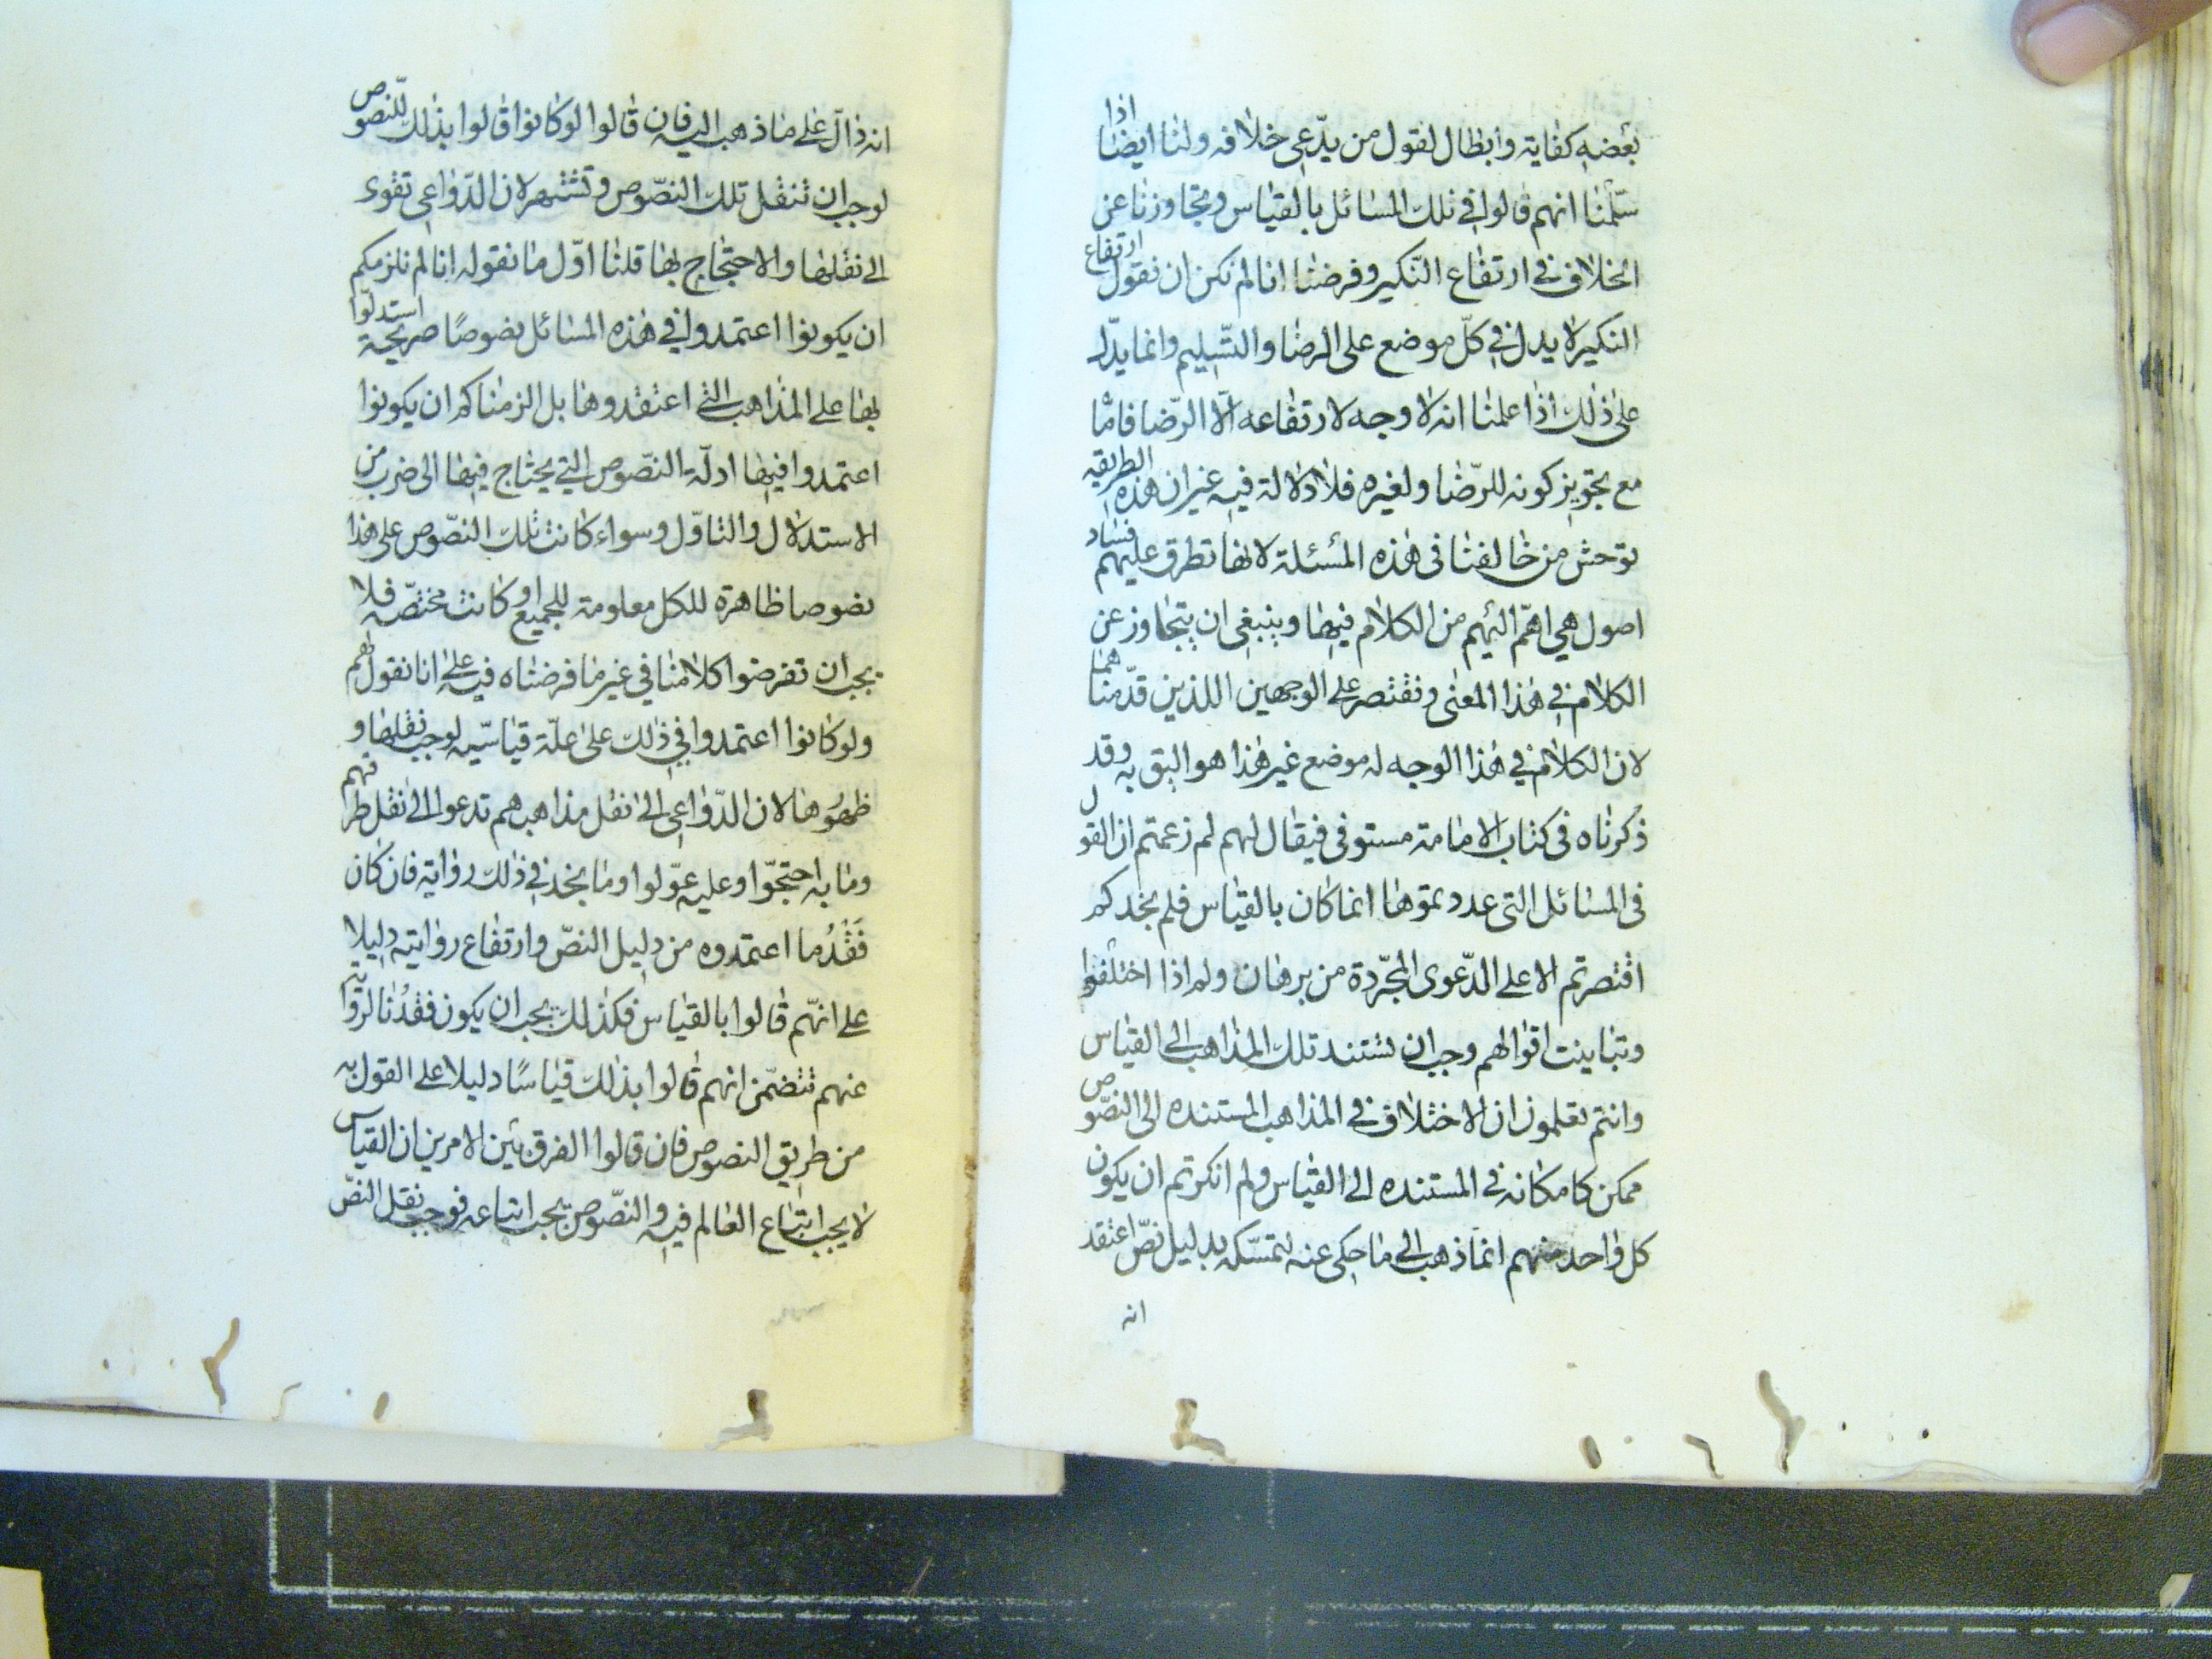 بعضه كفاية وابطال لقول من يدّعي خلافه ولنا ايضا اذا
سلّمنا انهم قالوا في تلك المسائل بالقياس وتجاوزنا عن
الخلاف في ارتفاع النكير وفرضنا انا لم نكن ان نقول ارتفاع
النكير لا يدل في كلّ موضع على الرضا والتسليم وانما يدّل
على ذلك اذا علمنا انه لا وجه لارتفاعه الّا الرّضا فامّا
مع تجويز كونه للرّضا ولغيره فلا دلالة فيه غير ان هذه الطريقه
توحش من خالفنا في هذه المسئلة لانها تطرق عليهم فساد
اصول هي اهمّ اليهم من الكلام فيها وينبغي ان يتجاوز عن
الكلام في هذا المعنى ونقتصر على الوجهين اللذين قدّمناهما
لان الكلام في هذا الوجه له موضع غير هذا هو اليق به وقد
ذكرناه في كتاب الامامة مستوفى فيقال لهم لم زعمتم ان القول
في المسائل التي عددتموها انما كان بالقياس فلم نجدكم
اقتصرتم الا على الدّعوى المجرّدة من برهان ولم اذا اختلفوا
وتباينت اقوالهم وجب ان تستند تلك المذاهب الى القياس
وانتم تعلمون ان الاختلاف في المذاهب المستنده الى النصّوص
ممكن كامكانه في المستنده الى القياس ولم انكرتم ان يكون
كل واحد منهم انما ذهب الى ما حكى عنه لتمسّكه بدليل نصّ اعتقد
انه
انه دالّ على ما ذهب اليه فان قالوا لو كانوا قالوا بذلك للنّصوص
لوجب ان تنقل تلك النصّوص وتشتهر لان الدّواعي تقوى
الى نقلها والاحتجاج بها قلنا اوّل ما نقوله انا لم نلزمكم
ان يكونوا اعتمدوا في هذه المسائل نصوصًا صريحة استدلّوا
بها على المذاهب التي اعتقدوها بل الزمناكم ان يكونوا
اعتمدوا فيها ادلّة النصّوص التي يحتاج فيها الى ضرب من
الاستدلال والتاوّل وسواء كانت تلك النصّوص على هذا
نصوصا ظاهرة للكل معلومة للجميع او كانت مختصّه فلا
يجب ان تفرضوا كلامنا في غير ما فرضناه فيه على انا نقول لهم
ولو كانوا اعتمدوا في ذلك على علّة قياسّيه لوجب نقلها و
ظهُورها لان الدّواعي الى نقل مذاهبهم تدعوا الى نقل طرقهم
وما به احتجّوا وعليه عوّلوا وما نجد في ذلك رواية فان كان
فَقْدُ ما اعتمدوه من دليل النصّ وارتفاع روايته دليلا
على انهّم قالوا بالقياس فكذلك يجب ان يكون فقدُنا لرّواية
عنهم تتضمّن انهم قالوا بذلك قياسًا دليلا على القول به
من طريق النصوص فان قالوا الفرق بين الامرين ان القياس
لا يجب اتباع العالم فيه والنصّوص يجب اتباعه فوجب نقل النصّ